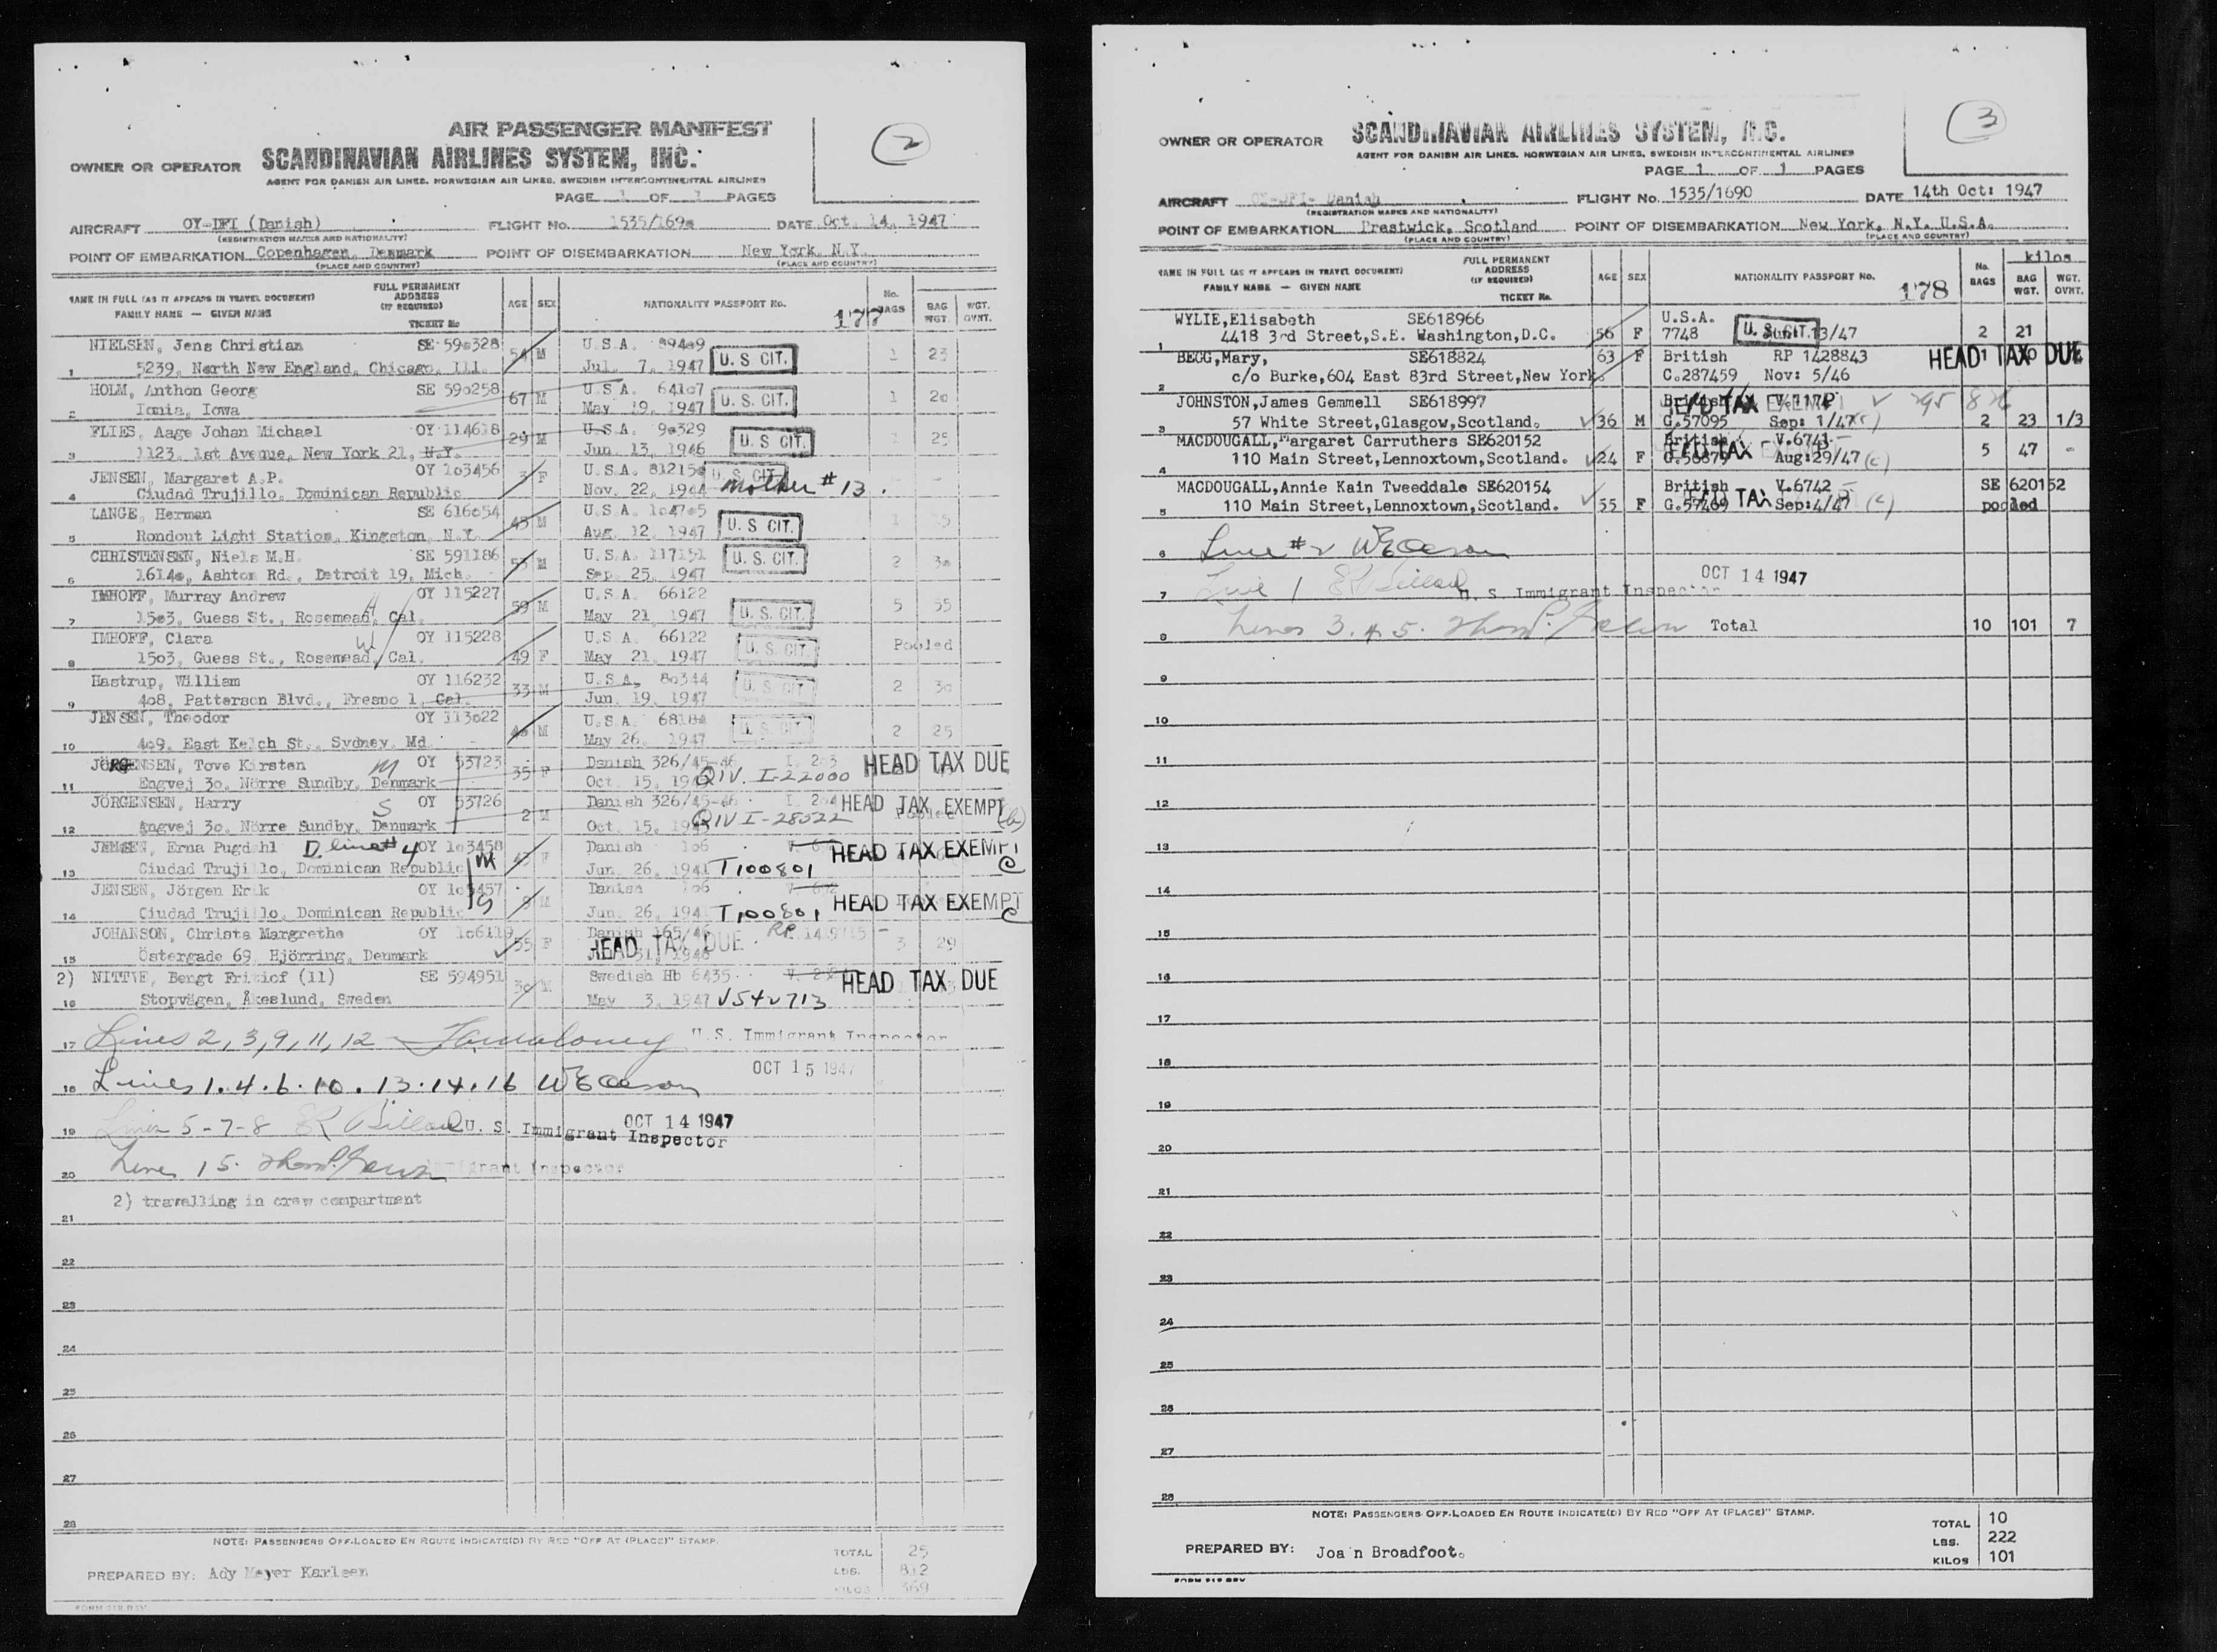 AIR PASSENGER MANIFEST
2
OWNER OR OPERATOR SCANDINAVIAN AIRLINES SYSTEM, INC.
AGENT FOR DANISH AIR LINES, NORWEGIAN AIR LINES, SWEDISH INTERCONTINENTAL AIRLINES
PAGE 1 OF 1 PAGES
AIRCRAFT OY-DFI (Danish) FLIGHT No. 1535/169o DATE Oct. 14, 1947
(REGISTRATION MARKS AND NATIONALITY)
POINT OF EMBARKATION Copenhagen, Denmark POINT OF DISEMBARKATION New York, N.Y.
(PLACE AND COUNTRY) (PLACE AND COUNTRY)
NAME IN FULL (AS IT APPEARS IN TRAVEL DOCUMENT) FAMILY NAME — GIVEN NAME FULL PERMANENT ADDRESS (IF REQUIRED) TICKET No AGE SEX NATIONALITY PASSPORT No. 177 No. BAGS BAG WGT. WGT. OVNT.
NIELSEN, Jens Christian SE 59o328 54 M U.S.A. 894o9 1 23
1 5239, North New England, Chicago, Ill. Jul. 7, 1947 U. S CIT.
HOLM, Anthon Georg SE 59o258 67 M U.S.A. 641o7 1 2o
2 Ionia, Iowa May 19, 1947 U. S. CIT.
FLIES, Aage Johan Michael OY 114618 29 M U.S.A. 9o329 1 25
3 1123, 1st Avenue, New York 21, N.Y. Jun. 13, 1946 U. S CIT.
JENSEN, Margaret A.P. OY 1o3456 3 F U.S.A. 81215o U. S CIT.
4 Ciudad Trujillo, Dominican Republic Nov. 22, 1944 mother # 13.
LANGE, Herman SE 616o54 43 M U.S.A. 1o47o5 1
5 Rondout Light Station, Kingston, N.Y. Aug. 12, 1947 U. S CIT.
CHRISTENSEN, Niels M.H. SE 591186 55 M U.S.A. 117151 2 3o
6 1614o, Ashton Rd., Detroit 19, Mich. Sep. 25, 1947 U. S. CIT.
IMHOFF, Murray Andrew H OY 115227 59 M U.S.A. 66122 5 55
7 15o3, Guess St., Rosemead, Cal. May 21, 1947 U. S. CIT.
IMHOFF, Clara W OY 115228 49 F U.S.A. 66122 Pooled
8 15o3, Guess St., Rosemead, Cal. May 21, 1947 U. S. CIT.
Hastrup, William OY 116232 33 M U.S.A. 8o344 2 3o
9 4o8, Patterson Blvd., Fresno 1, Cal. Jun. 19, 1947 U. S CIT.
JENSEN, Theodor OY 113o22 M U.S.A. 6818o 2 25
10 4o9, East Kelch St., Sydney, Md May 26, 1947 U. S. CIT.
JÖRGENSEN, Tove Kirsten M OY 53723 35 F Danish 326/45-46 HEAD TAX DUE
11 Engvej 3o, Nörre Sundby, Denmark Oct. 15, QIV. I-22000
JÖRGENSEN, Harry S OY 53726 2 M Danish 326/45-46 HEAD TAX EXEMPT (b)
12 Angvej 3o, Nörre Sundby, Denmark Oct. 15, QIV I-28522
JENSEN, Erna Pugdahl D line #4 OY 1o3458 43 F Danish 1o6 HEAD TAX EXEMPT C
13 Ciudad Trujillo, Dominican Republic M Jun. 26, 1941 T100801
JENSEN, Jörgen Erik OY 1o3457 8 M Danish 1o6 HEAD TAX EXEMPT C
14 Ciudad Trujillo, Dominican Republic S Jun. 26, 194 T100801
JOHANSON, Christa Margrethe OY 1o6119 55 F Danish 165/46 RP 3 29
15 Östergade 69, Hjörring, Denmark HEAD TAX DUE
2) NITTVE, Bengt Fritiof (11) SE 594951 3o M Swedish Hb 6435 HEAD TAX DUE
16 Stopvägen, Åkeslund, Sweden May 3, 1947 V542713
17 Lines 2, 3, 9, 11, 12 U.S. Immigrant Inspector
OCT 15 1947
18 Lines 1. 4. 6. 10. 13. 14. 16
OCT 14 1947
19 Lines 5-7-8 U. S. Immigrant Inspector
20 Line 15. Immigrant Inspector
2) travelling in crew compartment
21
22
23
24
25
26
27
28
NOTE: PASSENGERS OFF-LOADED EN ROUTE INDICATE(D) BY RED "OFF AT (PLACE)" STAMP.
TOTAL 25
LBS. 812
KILOS 369
PREPARED BY: Ady Meyer Karlsen
3
OWNER OR OPERATOR SCANDINAVIAN AIRLINES SYSTEM, INC.
AGENT FOR DANISH AIR LINES, NORWEGIAN AIR LINES, SWEDISH INTERCONTINENTAL AIRLINES
PAGE 1 OF 1 PAGES
AIRCRAFT OY-DFI- Danish FLIGHT No. 1535/1690 DATE 14th Oct: 1947
(REGISTRATION MARKS AND NATIONALITY)
POINT OF EMBARKATION Prestwick, Scotland POINT OF DISEMBARKATION New York, N.Y. U.S.A.
(PLACE AND COUNTRY) (PLACE AND COUNTRY)
kilos
NAME IN FULL (AS IT APPEARS IN TRAVEL DOCUMENT) FAMILY NAME — GIVEN NAME FULL PERMANENT ADDRESS (IF REQUIRED) TICKET No. AGE SEX NATIONALITY PASSPORT No. 178 No. BAGS BAG WGT. WGT. OVNT.
WYLIE,Elisabeth SE618966 U.S.A.
1 4418 3rd Street,S.E. Washington,D.C. 56 F 7748 U. S. CIT. 13/47 2 21
BEGG,Mary, SE618824 63 F British RP 1428843 HEAD TAX DUE
2 c/o Burke,604 East 83rd Street,New York. C.287459 Nov: 5/46
JOHNSTON,James Gemmell SE618997 British HEAD TAX EXEMPT
3 57 White Street,Glasgow,Scotland. 36 M G.57095 Sep: 1/47 2 23 1/3
MACDOUGALL,Margaret Carruthers SE620152 British V.6741
4 110 Main Street,Lennoxtown,Scotland. 24 F HEAD TAX Aug:29/47 (c) 5 47 -
MACDOUGALL,Annie Kain Tweeddale SE620154 British V.6742 SE 620152
5 110 Main Street,Lennoxtown,Scotland. 55 F G.57469 HEAD TAX Sep:4/47 (c) pooled
6 Line #2
OCT 14 1947
7 Line 1 U. S. Immigrant Inspector
8 Lines 3. 4 5. Total 10 101 7
9
10
11
12
13
14
15
16
17
18
19
20
21
22
23
24
25
26
27
28
NOTE: PASSENGERS OFF-LOADED EN ROUTE INDICATE(D) BY RED "OFF AT (PLACE)" STAMP.
TOTAL 10
LBS. 222
KILOS 101
PREPARED BY: Joan Broadfoot.